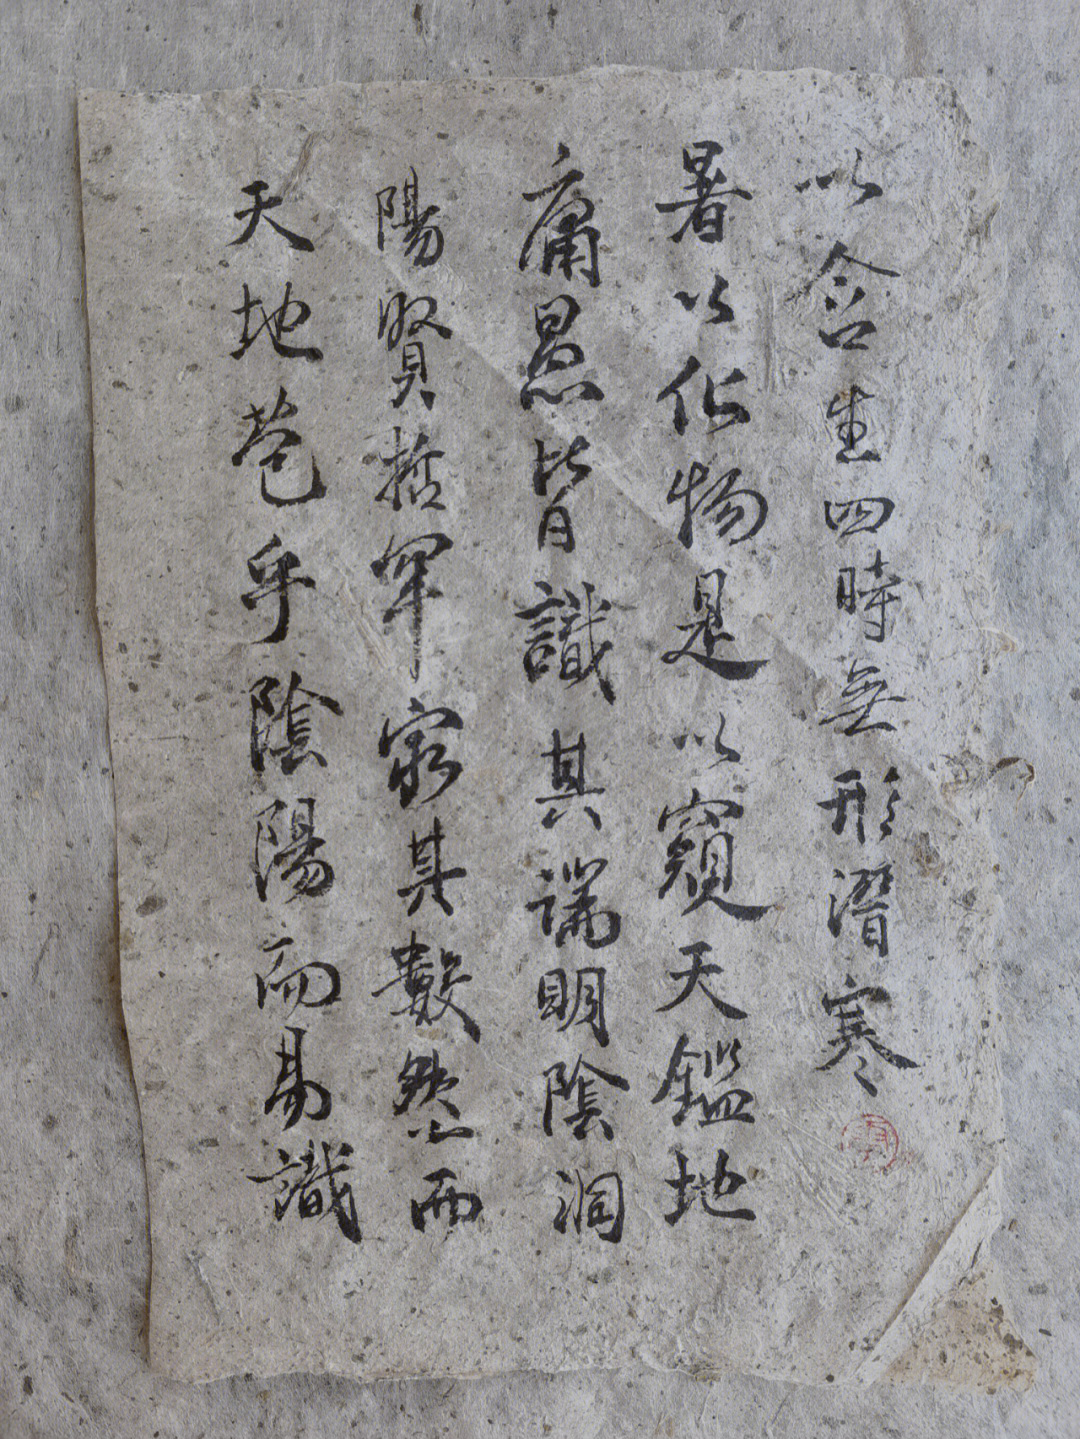 以含生四時無形潛寒
暑以化物是以窺天鑑地
庸愚皆識其端明陰洞
陽賢哲罕窮其數然而
天地苞乎陰陽而易識